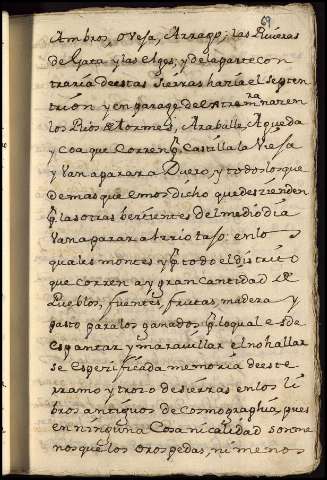 69
Ambros, oveja, Arrago; las Riueras
de Gata y las elges; y de la parte con
traria deestas Sierras hazia el septen
trion y en parage de estremra nazen
los Rios de Tormes, Araballe, Agueda
y Coa que Corren pr Castilla la Vieja
y Van aparar a Duero, y todos los que
demas que emos dicho que deszienden
pr las otras bertientes del mediodia
Van aparar a rrio tajo: en lo s
quales montes y pr todo el distrito
que corren ay gran Cantidad de
Pueblos, fuentes, frutas, madera y
pasto para los ganados pr lo qual es de
espantar y marauillar el no hallar
se espezificada memoria de este
rramo y trozo de sierras en los li
bros antiguos de Cosmographia, pues
en ninguna Cosa ni calidad son me
nos que los orospedas, ni menos